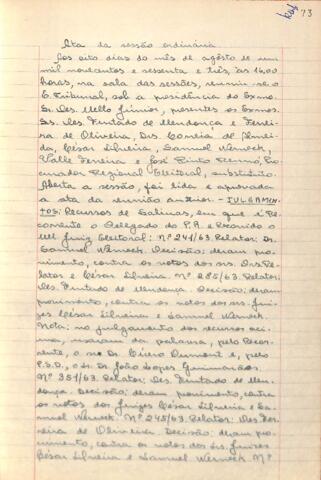 73
Ata da sessão ordinária.
Aos oito dias do mês de agôsto de um
mil novecentos e sessenta e três, às 14,00
horas, na sala das sessões, reuniu-se o
E. Tribunal, sob a presidência do Exmo.
Sr. Des. Mello Júnior, presentes os Exmos.
Srs. Des. Furtado de Mendonça e Ferrei-
ra de Oliveira, Drs. Corrêia de Almei-
da, César Silveira, Samuel Werneck,
Valle Ferreira e José Pinto Renno, Pro-
curador Regional Eleitoral, substituto.
Aberta a sessão, foi lida e aprovada
a ata da reunião anterior. - JULGAMEN-
TOS: Recursos de Salinas, em que é Re-
corrente o Delegado do P.R. e Recorrido o
M. Juiz Eleitoral: Nº 241/63. Relator: Dr.
Samuel Werneck. Decisão: deram pro-
vimento, contra os votos dos srs. Drs. Re-
lator e César Silveira. Nº 285/63. Relator:
Des. Furtado de Mendonça. Decisão: deram
provimento, contra os votos dos srs. Juí-
zes César Silveira e Samuel Werneck.
Nota: no julgamento dos recursos aci-
ma, usaram da palavra, pelo Recor-
rente, o sr. Dr. Cícero Dumont e, pelo
P.S.D., o sr. Dr. João Lopes Guimarães.
Nº 351/63. Relator: Des. Furtado de Men-
donça. Decisão: deram provimento, contra
os votos dos Juízes César Silveira e Sa-
muel Werneck. Nº 245/63. Relator: Des. Fer-
reira de Oliveira. Decisão: deram pro-
vimento, contra os votos dos srs. Juízes
César Silveira e Samuel Werneck. Nº